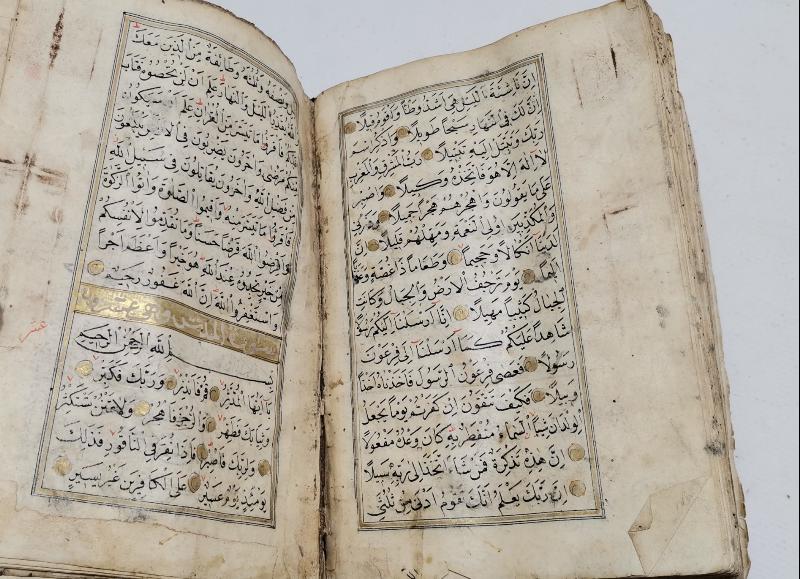 اِنَّ نَاشِئَةَ الَّيْلِ هِىَ اَشَدُّ وَطْأً وَاَقْوَمُ قِيلًا
اِنَّ لَكَ فِى النَّهَارِ سَبْحًا طَوِيلًا وَاذْكُرِ اسْمَ
رَبِّكَ وَتَبَتَّلْ اِلَيْهِ تَبْتِيلًا رَبُّ الْمَشْرِقِ وَالْمَغْرِبِ
لَا اِلٰهَ اِلَّا هُوَ فَاتَّخِذْهُ وَكِيلًا وَاصْبِرْ
عَلٰى مَا يَقُولُونَ وَاهْجُرْهُمْ هَجْرًا جَمِيلًا وَذَرْنِى
وَالْمُكَذِّبِينَ اُولِى النَّعْمَةِ وَمَهِّلْهُمْ قَلِيلًا اِنَّ
لَدَيْنَا اَنْكَالًا وَجَحِيمًا وَطَعَامًا ذَا غُصَّةٍ وَعَذَابًا
اَلِيمًا يَوْمَ تَرْجُفُ الْاَرْضُ وَالْجِبَالُ وَكَانَتِ
الْجِبَالُ كَثِيبًا مَهِيلًا اِنَّا اَرْسَلْنَا اِلَيْكُمْ رَسُولًا
شَاهِدًا عَلَيْكُمْ كَمَا اَرْسَلْنَا اِلٰى فِرْعَوْنَ
رَسُولًا فَعَصٰى فِرْعَوْنُ الرَّسُولَ فَاَخَذْنَاهُ اَخْذًا
وَبِيلًا فَكَيْفَ تَتَّقُونَ اِنْ كَفَرْتُمْ يَوْمًا يَجْعَلُ
الْوِلْدَانَ شِيبًا السَّمَاءُ مُنْفَطِرٌ بِهِ كَانَ وَعْدُهُ مَفْعُولًا
اِنَّ هٰذِهِ تَذْكِرَةٌ فَمَنْ شَاءَ اتَّخَذَ اِلٰى رَبِّهِ سَبِيلًا
اِنَّ رَبَّكَ يَعْلَمُ اَنَّكَ تَقُومُ اَدْنٰى مِنْ ثُلُثَىِ
الَّيْلِ وَنِصْفَهُ وَثُلُثَهُ وَطَائِفَةٌ مِنَ الَّذِينَ مَعَكَ
وَاللّٰهُ يُقَدِّرُ الَّيْلَ وَالنَّهَارَ عَلِمَ اَنْ لَنْ تُحْصُوهُ فَتَابَ
عَلَيْكُمْ فَاقْرَؤُا مَا تَيَسَّرَ مِنَ الْقُرْاٰنِ عَلِمَ اَنْ سَيَكُونُ
مِنْكُمْ مَرْضٰى وَاٰخَرُونَ يَضْرِبُونَ فِى الْاَرْضِ يَبْتَغُونَ
مِنْ فَضْلِ اللّٰهِ وَاٰخَرُونَ يُقَاتِلُونَ فِى سَبِيلِ اللّٰهِ
فَاقْرَؤُا مَا تَيَسَّرَ مِنْهُ وَاَقِيمُوا الصَّلٰوةَ وَاٰتُوا الزَّكٰوةَ
وَاَقْرِضُوا اللّٰهَ قَرْضًا حَسَنًا وَمَا تُقَدِّمُوا لِاَنْفُسِكُمْ
مِنْ خَيْرٍ تَجِدُوهُ عِنْدَ اللّٰهِ هُوَ خَيْرًا وَاَعْظَمَ اَجْرًا
وَاسْتَغْفِرُوا اللّٰهَ اِنَّ اللّٰهَ غَفُورٌ رَحِيمٌ
بِسْمِ اللّٰهِ الرَّحْمٰنِ الرَّحِيمِ
يَا اَيُّهَا الْمُدَّثِّرُ قُمْ فَاَنْذِرْ وَرَبَّكَ فَكَبِّرْ
وَثِيَابَكَ فَطَهِّرْ وَالرُّجْزَ فَاهْجُرْ وَلَا تَمْنُنْ تَسْتَكْثِرُ
وَلِرَبِّكَ فَاصْبِرْ فَاِذَا نُقِرَ فِى النَّاقُورِ فَذٰلِكَ
يَوْمَئِذٍ يَوْمٌ عَسِيرٌ عَلَى الْكَافِرِينَ غَيْرُ يَسِيرٍ
عشر